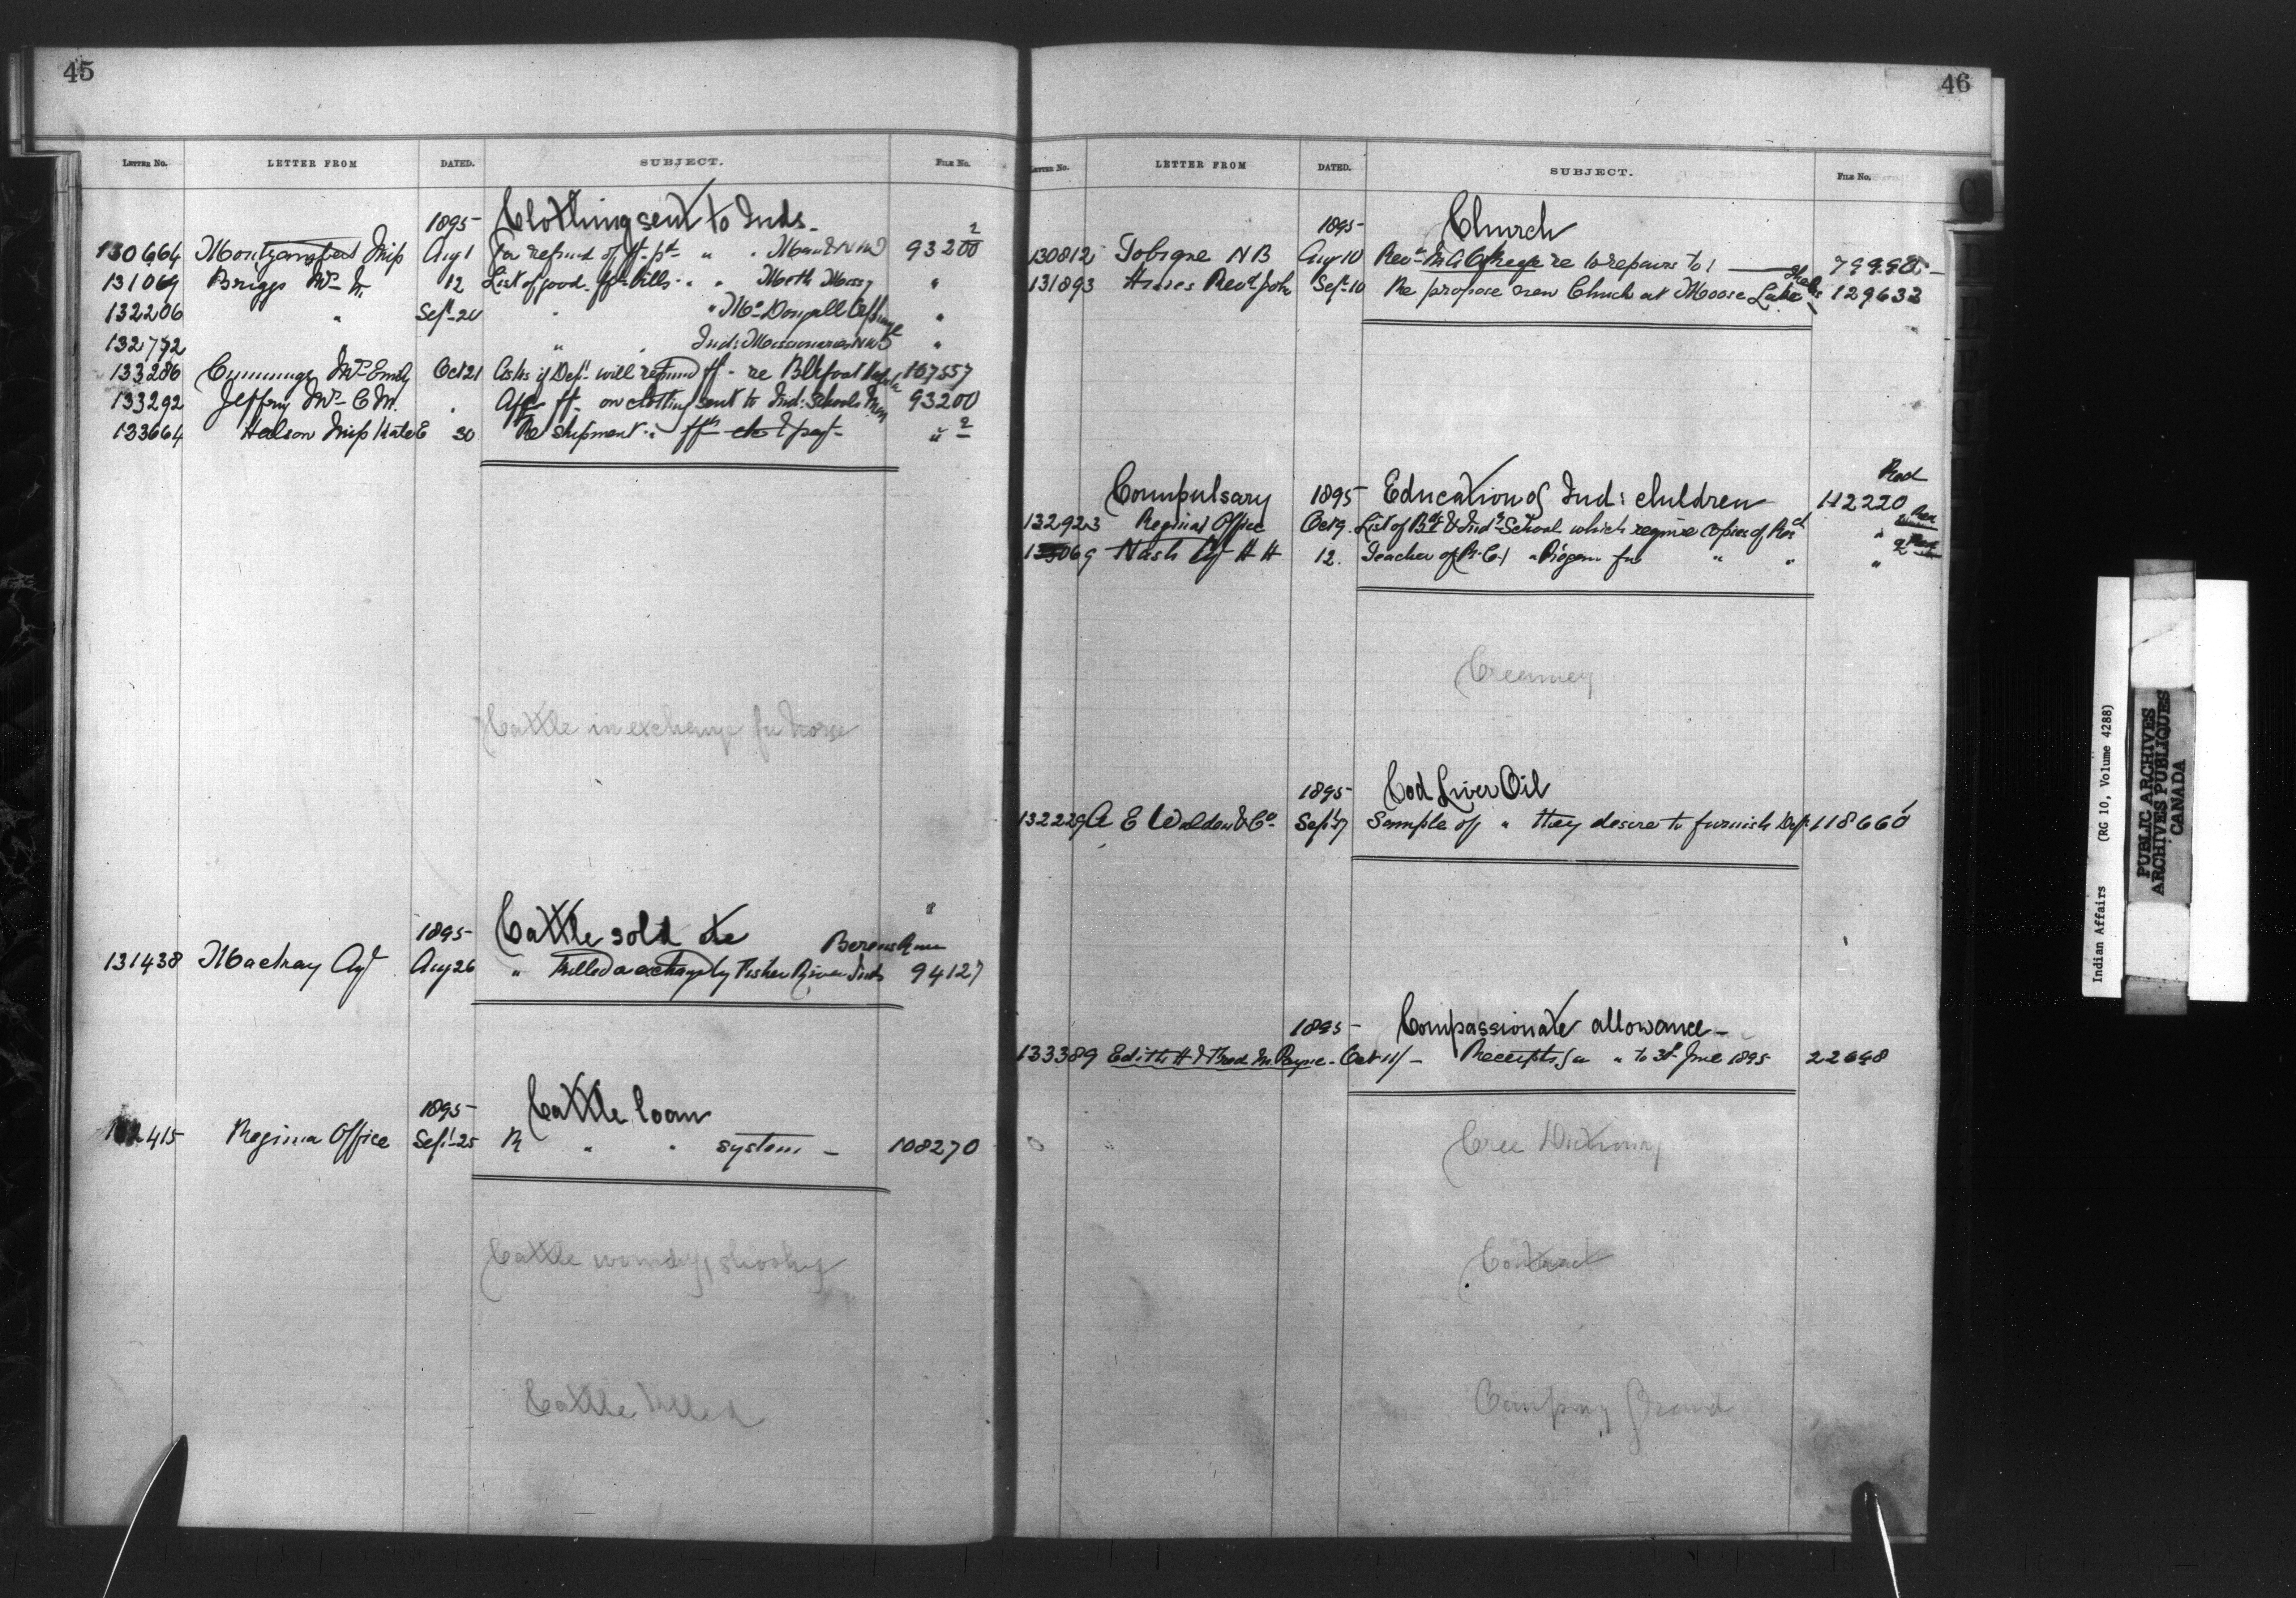 45
LETTER No. LETTER FROM DATED. SUBJECT. FILE No.
1895 Clothing sent to Inds.
130664 Miss Aug 1 For refund of ft. pd " " Man & NW 93200 2
131069 Briggs Mrs 12 List of good ft bills " " North "
132206 " Sept 20 " " McDougall Orphanage "
132772 " " " Ind: Missionaries NWT "
133286 Cummings Mrs Emily Oct 21 Asks if Dept. will refund ft - re Blkfoot 107557
133292 Jeffrey Mrs C M. " ft. on clothing sent to Ind: Schools Man 93200
133664 Miss Kate E 30 Re shipment " " 2
Cattle in exchange for horse
1895 Cattle sold etc
Berens River
131438 Mackay Agt Aug 26 " Killed or exchang by Fisher River Inds 94127
1895 Cattle loan
415 Regina Office Sept 25 R " " system - 108270
Cattle wounding, shooting
Cattle killed
46
LETTER No. LETTER FROM DATED. SUBJECT. FILE No.
1895 Church
130812 Tobique N B Aug 10 Revd re repairs to 1
131893 Hines Revd John Sept 10 Re propose new Church at Moose Lake 129633
Compulsary 1895 Education of Ind: children 112220
132923 Regina Office Oct 9. List of Bdg & Indl School which require copies of "
Nash Agt H H 12. Teacher of R. C. " " " "
Creamery
1895 Cod Liver Oil
132229 A E Walden & Co Sept 17 Sample of " they desire to furnish Dept 118660
1895 Compassionate allowance -
133389 Edith H & Thod M. Payne - Oct - Receipts for " to 30 June 1895 22698
Cree Dictionary
Contract
Camping Ground
Indian Affairs (RG 10, Volume 4288)
PUBLIC ARCHIVES
ARCHIVES PUBLIQUES
CANADA